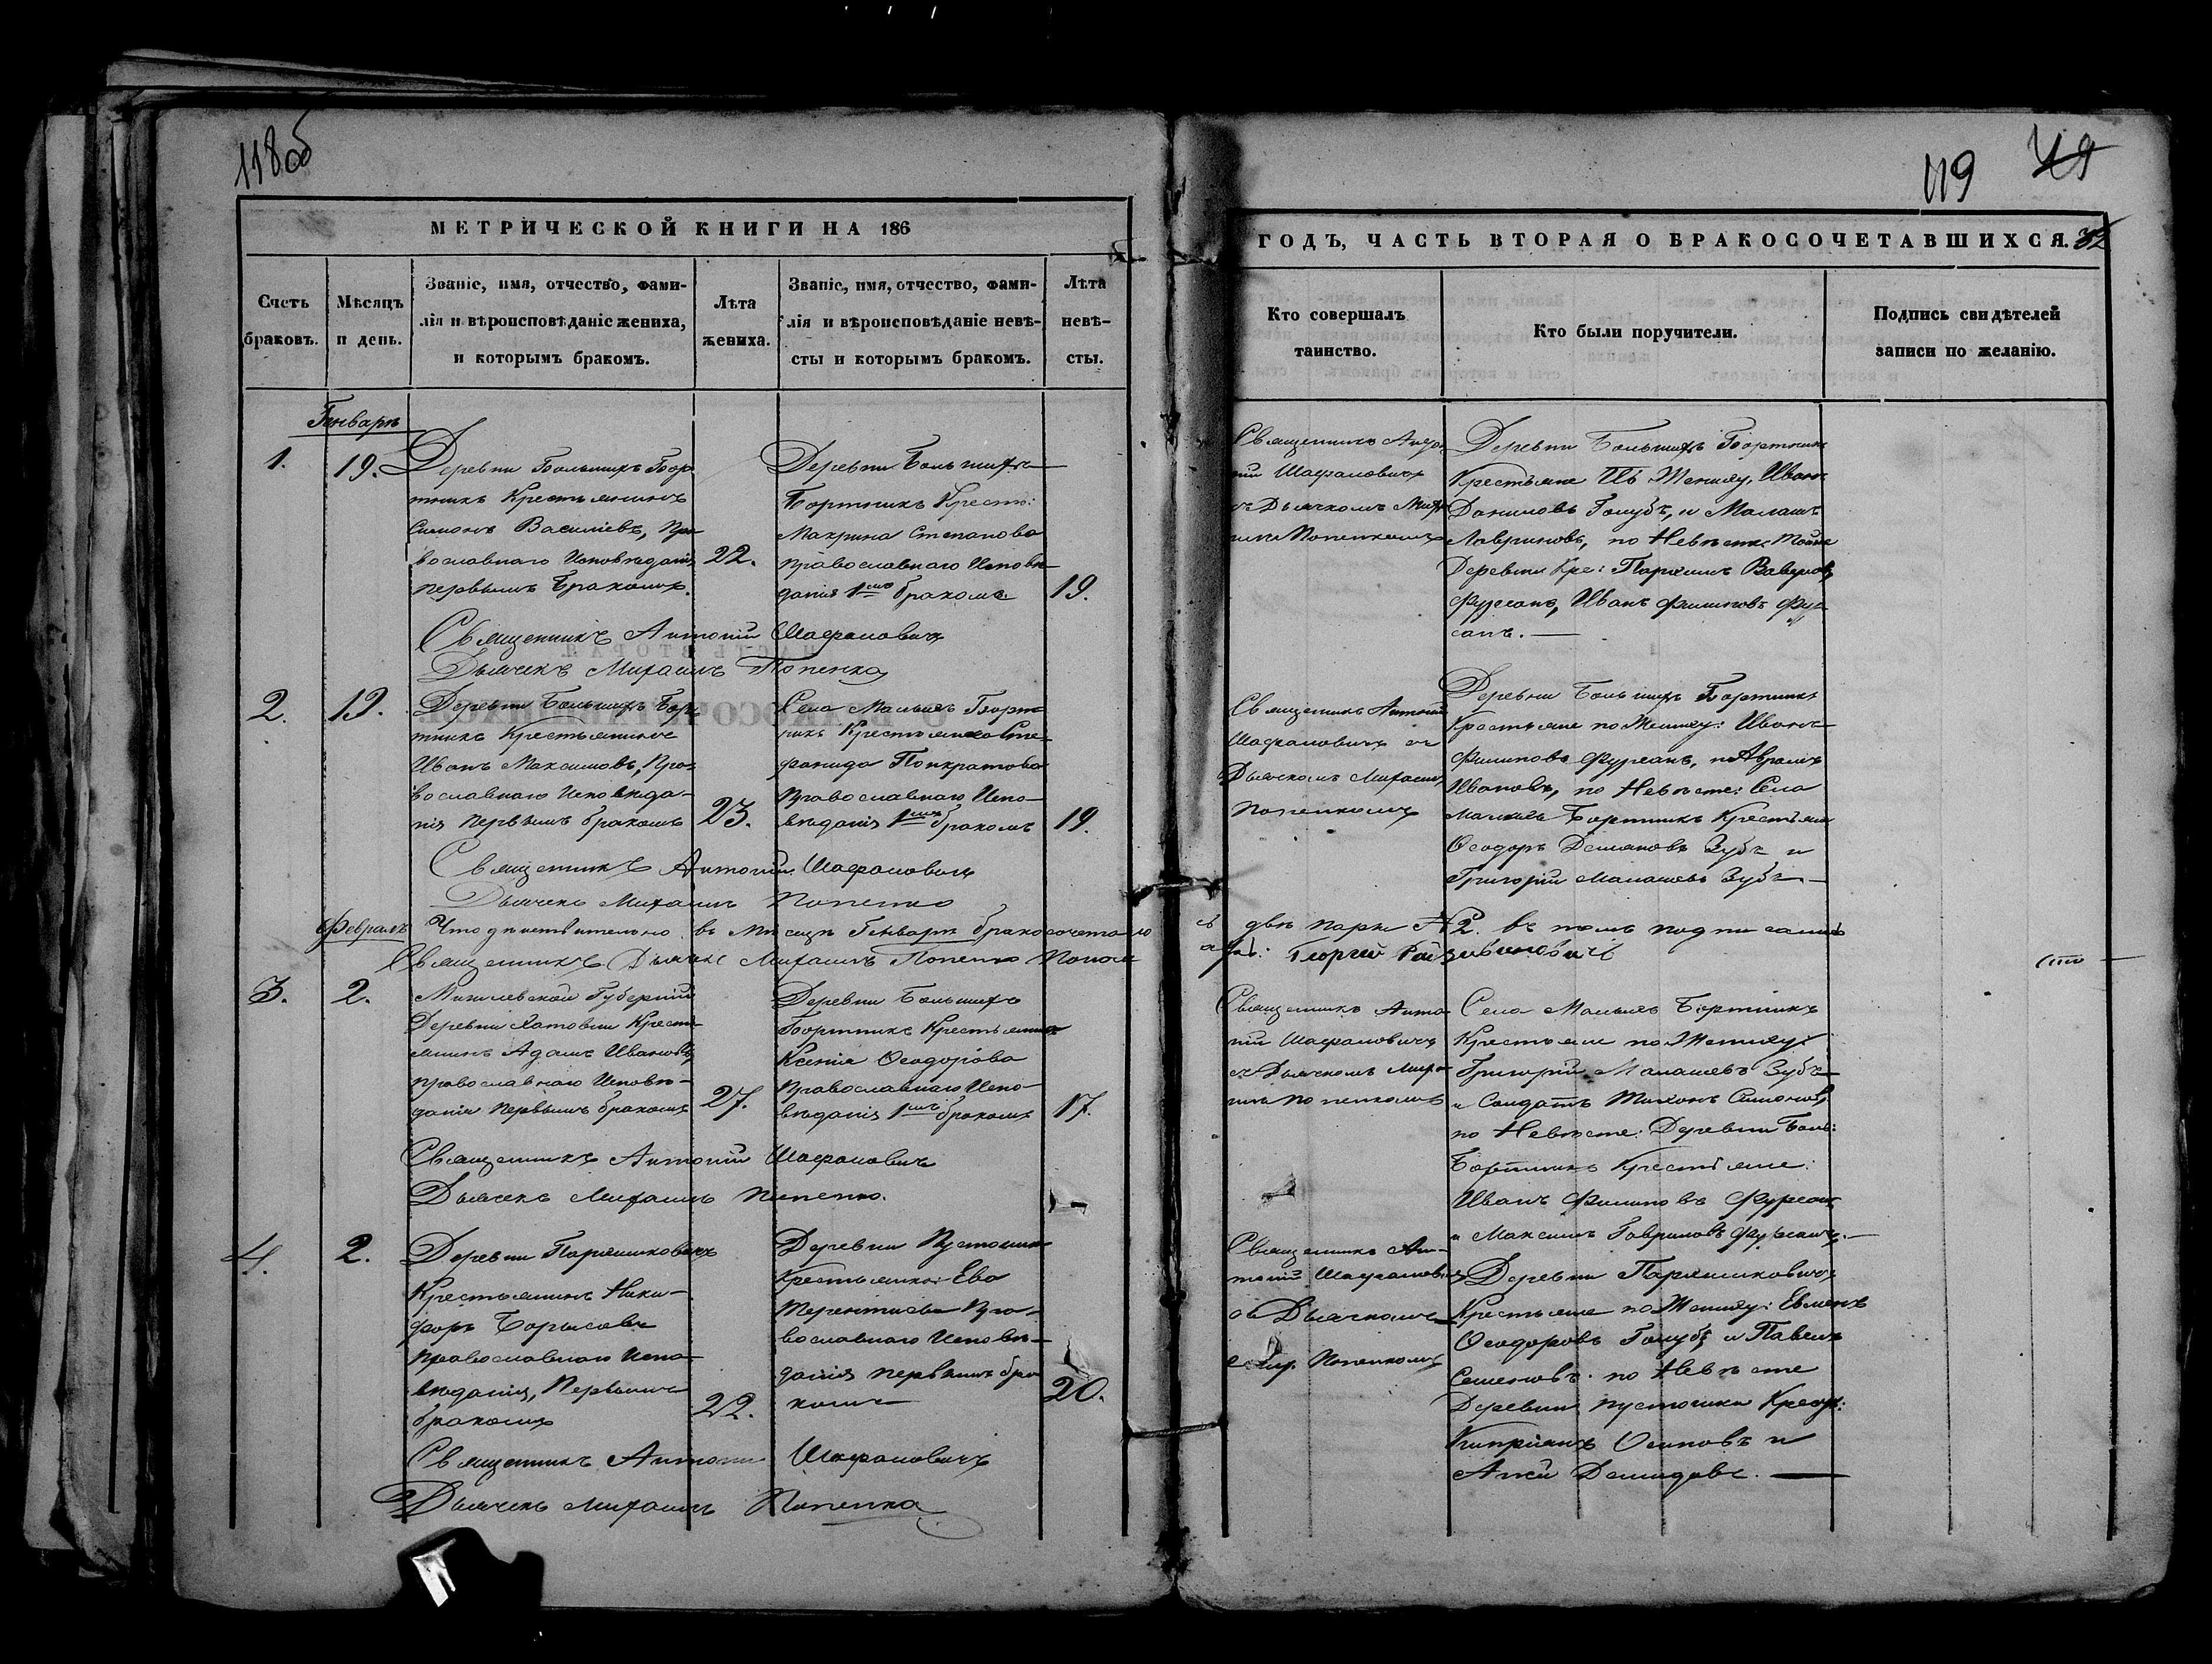 118об
МЕТРИЧЕСКОЙ КНИГИ НА 186
Счетъ
браковъ.
Мѣсяцъ
и день.
Званіе, имя, отчество, фами-
лія и вѣроисповѣданіе жениха,
и которымъ бракомъ.
Лѣта
жениха.
Званіе, имя, отчество, фами-
лія и вѣроисповѣданіе невѣ-
сты и которымъ бракомъ.
Лѣта
невѣ-
сты.
Генварь
1.
19.
Деревни Большихъ Бор-
тникъ Крестьянинъ
Симонъ Василіевъ, Пра-
вославнаго Исповѣданія
первымъ бракомъ.
22.
Деревни Большихъ
Бортникъ Крест:
Макрина Степанова
православнаго Исповѣ-
данія 1мъ бракомъ.
19.
Священникъ Антоній Шафрановичъ
Дьячекъ Михаилъ Попенко
2.
19.
Деревни Большихъ Бор-
тникъ Крестьянинъ
Иванъ Максимовъ, Пра-
вославнаго Исповѣда-
нія первымъ бракомъ
23.
Села Малыхъ Борт-
никъ Крестьянка Сте-
фанида Панкратова
Православнаго Испо-
вѣданія 1мъ бракомъ
19.
Священникъ Антоній Шафрановичъ
Дьячекъ Михаилъ Попенко
Февраль
Что дѣйствительно въ Мѣсяцѣ Генварѣ бракосочетано
Священникъ Дьячекъ Михаилъ Попенко
3.
2.
Могилевской Губерніи
Деревни Хатовни Кресть-
янинъ Адамъ Ивановъ,
православнаго Исповѣ-
данія первымъ бракомъ
27.
Деревни Большихъ
Бортникъ Крестьянка
Ксенія Ѳеодорова
Православнаго Испо-
вѣданія 1мъ бракомъ
17.
Священникъ Антоній Шафрановичъ
Дьячекъ Михаилъ Попенко.
4.
2.
Деревни
Крестьянинъ Ники-
форъ Борисовъ
православнаго Испо-
вѣданія, Первымъ
бракомъ
22.
Деревни
Крестьянка Ева
Терентіева Пра-
вославнаго Исповѣ-
данія первымъ бра-
комъ
20.
Священникъ Антоній Шафрановичъ
Дьячекъ Михаилъ Попенко
119
ГОДЪ, ЧАСТЬ ВТОРАЯ О БРАКОСОЧЕТАВШИХСЯ.
Кто совершалъ
таинство.
Кто были поручители.
Подпись свидѣтелей
записи по желанію.
Священникъ Анто-
ній Шафрановичъ
съ Дьячкомъ Миха-
иломъ Попенкомъ
Деревни Большихъ Бортникъ
Крестьяне По Жениху, Иванъ
Даниловъ Голубъ, и
по Невѣстѣ Тойже
Деревни Кре:
Фурсанъ, Иванъ Филиповъ Фур-
санъ.
Священникъ Антоній
Шафрановичъ съ
Дьячкомъ Михаиломъ
Попенкомъ
Деревни Большихъ Бортникъ
Крестьяне по Жениху: Иванъ
Филиповъ Фурсанъ, и Аврамъ
Ивановъ, по Невѣсте: Села
Малыхъ Бортникъ Крестьяне
Ѳеодоръ Демяновъ Зубъ и
Григорій Малашевъ Зубъ.
двѣ пары №2. въ томъ подписались
Георгій
Священникъ Анто-
ній Шафрановичъ
съ Дьячкомъ Миха-
иломъ Попенкомъ
Села Малыхъ Бортникъ
Крестьяне по Жениху:
Григорій Малашевъ Зубъ
и Солдатъ Тихонъ Симоновъ,
по Невѣсте: Деревни Боль:
Бортникъ Крестьяне:
Иванъ Филиповъ Фурсанъ
и Максимъ Гавриловъ Фурсанъ.
Священникъ Ан-
тоній Шафрановичъ
съ Дьячкомъ
Мих. Попенкомъ
Деревни
Крестьяне по Жениху: Евменъ
Ѳеодоровъ Голубъ и Павелъ
Семеновъ. по Невѣсте
Деревни
Кипріянъ Осиповъ и
Демидовъ.